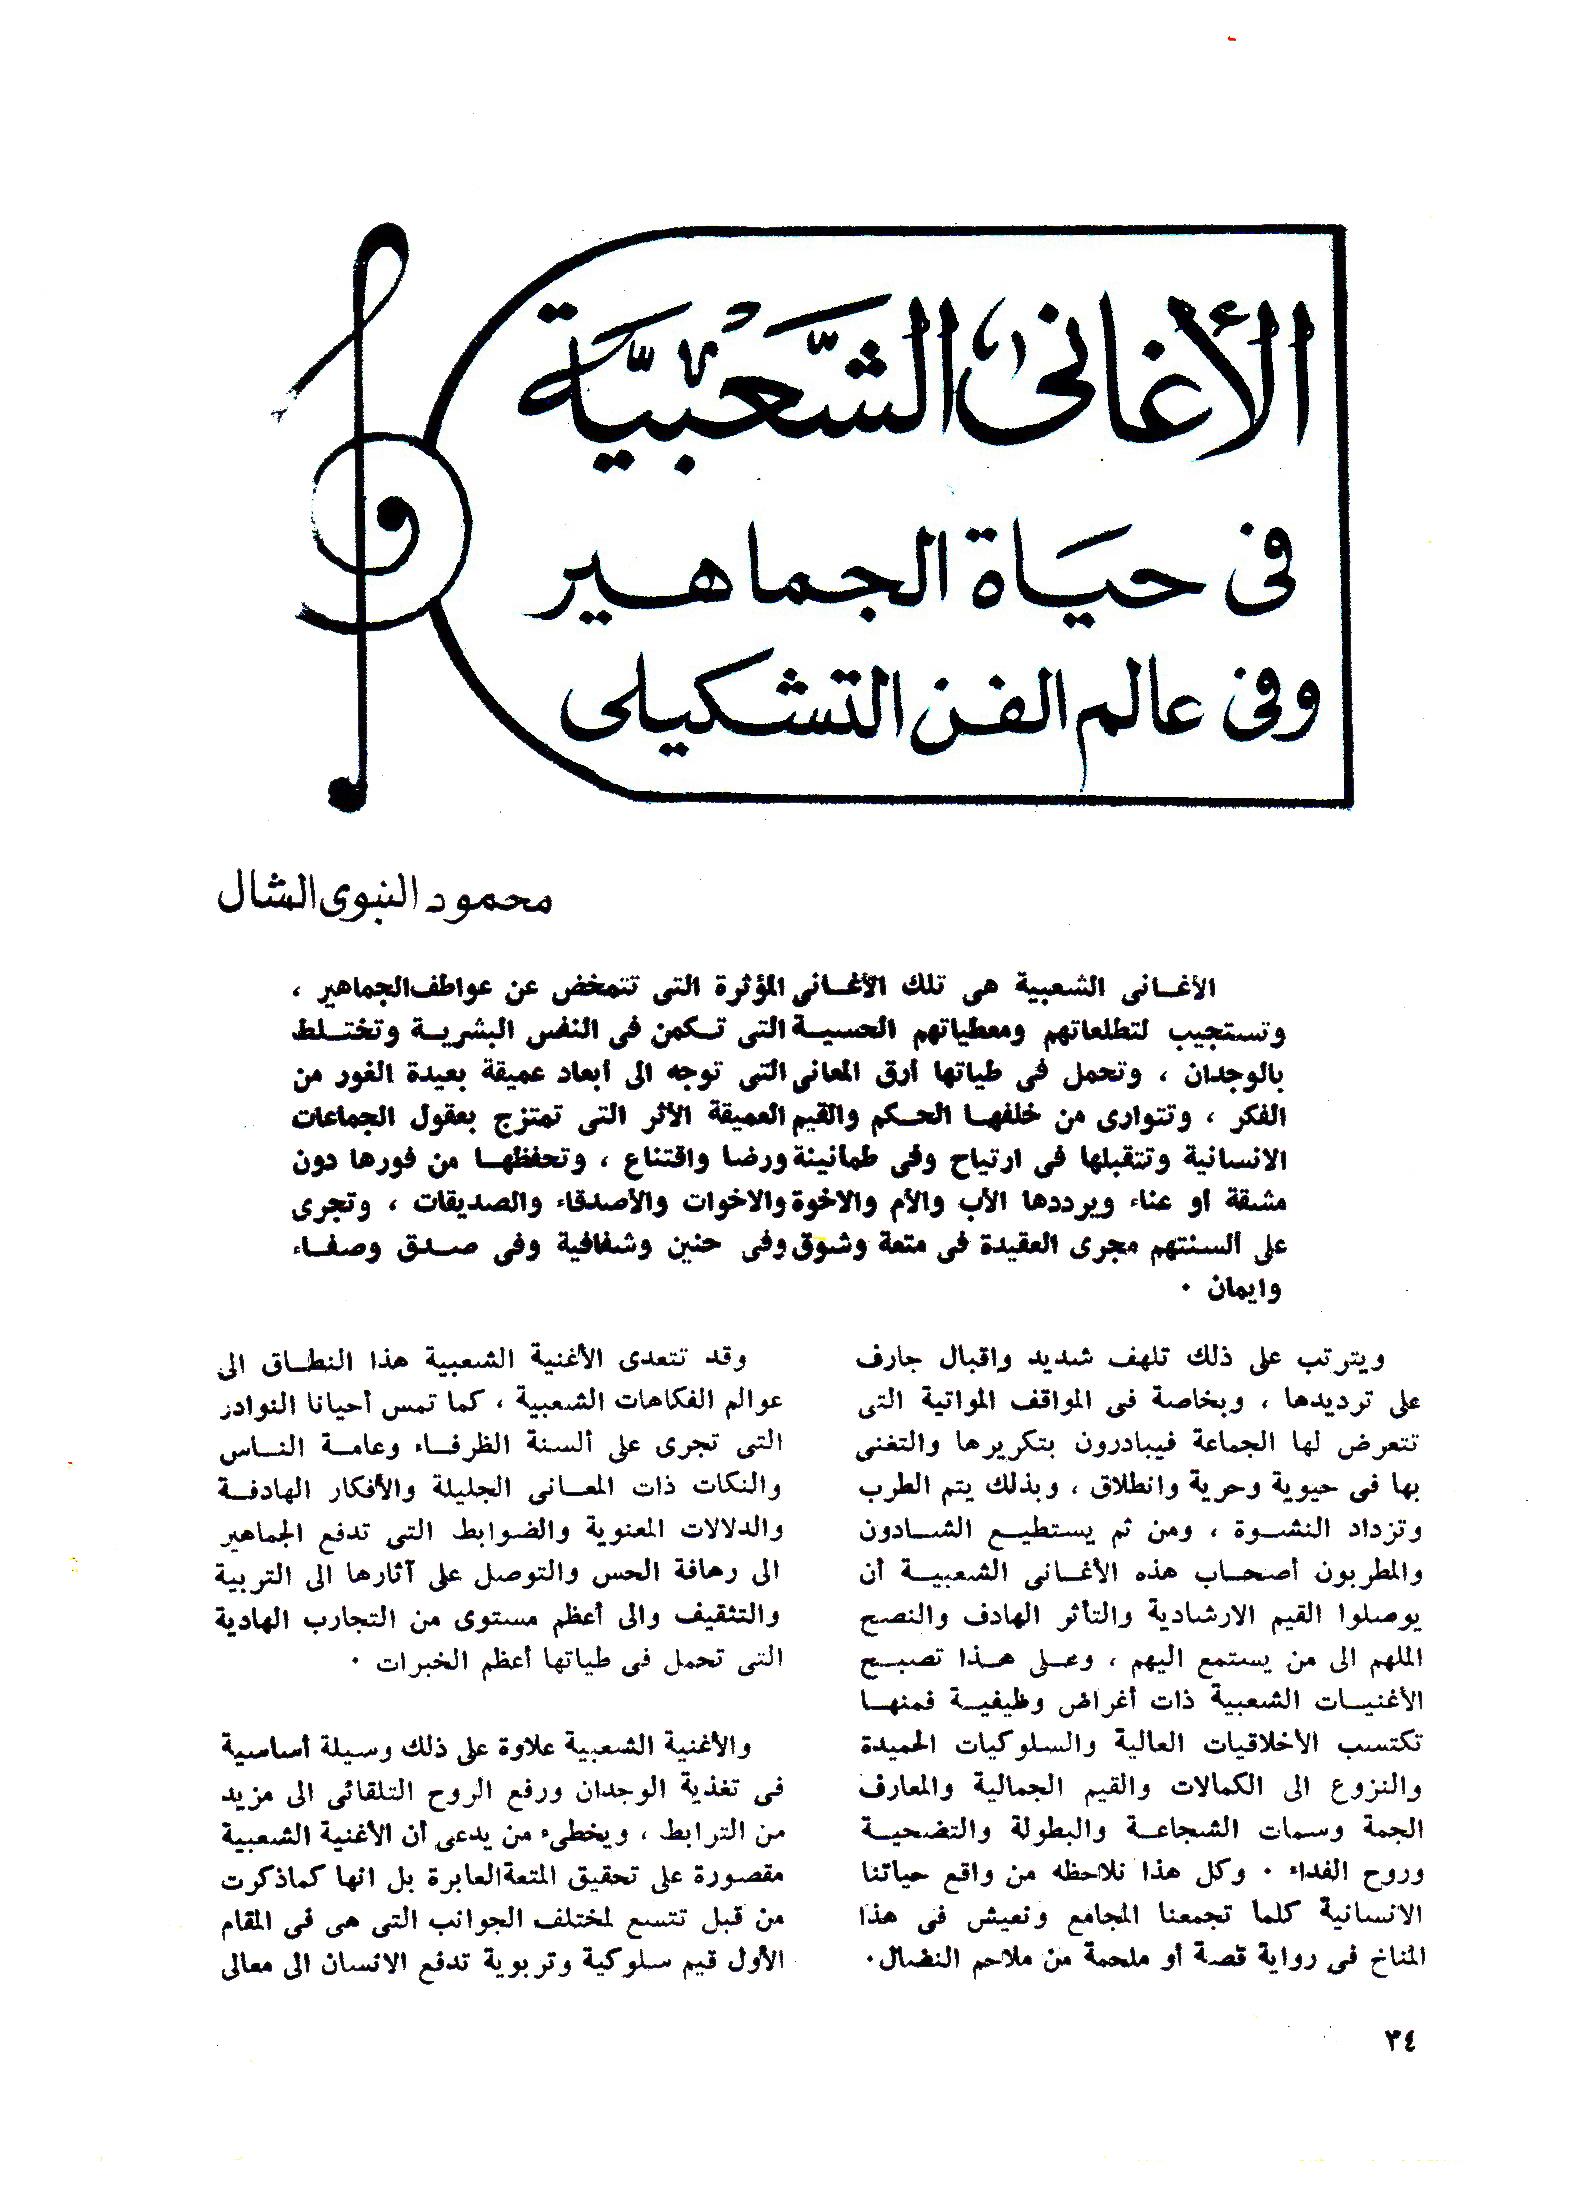 الأغانى الشَّعْبيَّة
فى حيَاة الجماهير
وفى عالم الفن التشكيلى
محمود النبوى الشال
الأغـانى الشعبية هى تلك الأغـانى المؤثرة التى تتمخض عن عواطف الجماهير ،
وتستجيب لتطلعاتهم ومعطياتهم الحسيـة التى تـكمن فى النفس البشريـة وتختـلط
بالوجدان ، وتحمل فى طياتها أرق المعانى التى توجه الى أبعاد عميقة بعيدة الغور من
الفكر ، وتتوارى من خلفهـا الحـكم والقيم العميقة الأثر التى تمتزج بعقول الجماعات
الانسانية وتتقبلها فى ارتياح وفى طمأنينة ورضا واقتناع ، وتحفظهـا من فورها دون
مشقة أو عناء ويرددها الأب والأم والاخوة والاخوات والأصدقاء والصديقات ، وتجرى
على ألسنتهم مجرى العقيدة فى متعة وشوق وفى حنين وشفافية وفى صـدق وصفـاء
وايمان ٠
ويترتب على ذلك تلهف شديد واقبال جارف
على ترديدها ، وبخاصة فى المواقف المواتية التى
تتعرض لها الجماعة فيبادرون بتكريرها والتغنى
بها فى حيوية وحرية وانطلاق ، وبذلك يتم الطرب
وتزداد النشـوة ، ومن ثم يستطيـع الشـادون
والمطربون أصحـاب هذه الأغـانى الشعبيـة أن
يوصلوا القيم الارشادية والتأثر الهادف والنصح
الملهم الى من يستمع اليهم ، وعـلى هـذا تصبـح
الأغنيـات الشعبية ذات أغراض وظيفيـة فمنهـا
تكتسب الأخلاقيات العالية والسلوكيات الحميدة
والنزوع الى الكمالات والقيم الجمالية والمعارف
الجمة وسمات الشجاعـة والبطولة والتضحيـة
وروح الفداء ٠ وكل هذا نلاحظه من واقع حياتنا
الانسانية كلما تجمعنا المجامع ونعيش فى هذا
المناخ فى رواية قصة أو ملحمة من ملاحم النضال٠
وقد تتعدى الأغنية الشعبية هذا النطـاق الى
عوالم الفكاهات الشعبية ، كما تمس أحيانا النوادر
التى تجرى على ألسنة الظرفـاء وعامـة النـاس
والنكات ذات المعـانى الجليلة والأفكار الهادفـة
والدلالات المعنوية والضوابط التى تدفع الجماهير
الى رهافة الحس والتوصل على آثارها الى التربية
والتثقيف والى أعظم مستوى من التجارب الهادية
التى تحمل فى طياتها أعظم الخبرات ٠
والأغنية الشعبية علاوة على ذلك وسيلة أساسية
فى تغذية الوجدان ورفع الروح التلقائى الى مزيد
من الترابط ، ويخطىء من يدعى أن الأغنية الشعبية
مقصورة على تحقيق المتعة العابرة بل انها كماذكرت
من قبل تتسع لمختلف الجوانب التى هى فى المقام
الأول قيم سلوكية وتربوية تدفع الانسان الى معالى
٣٤